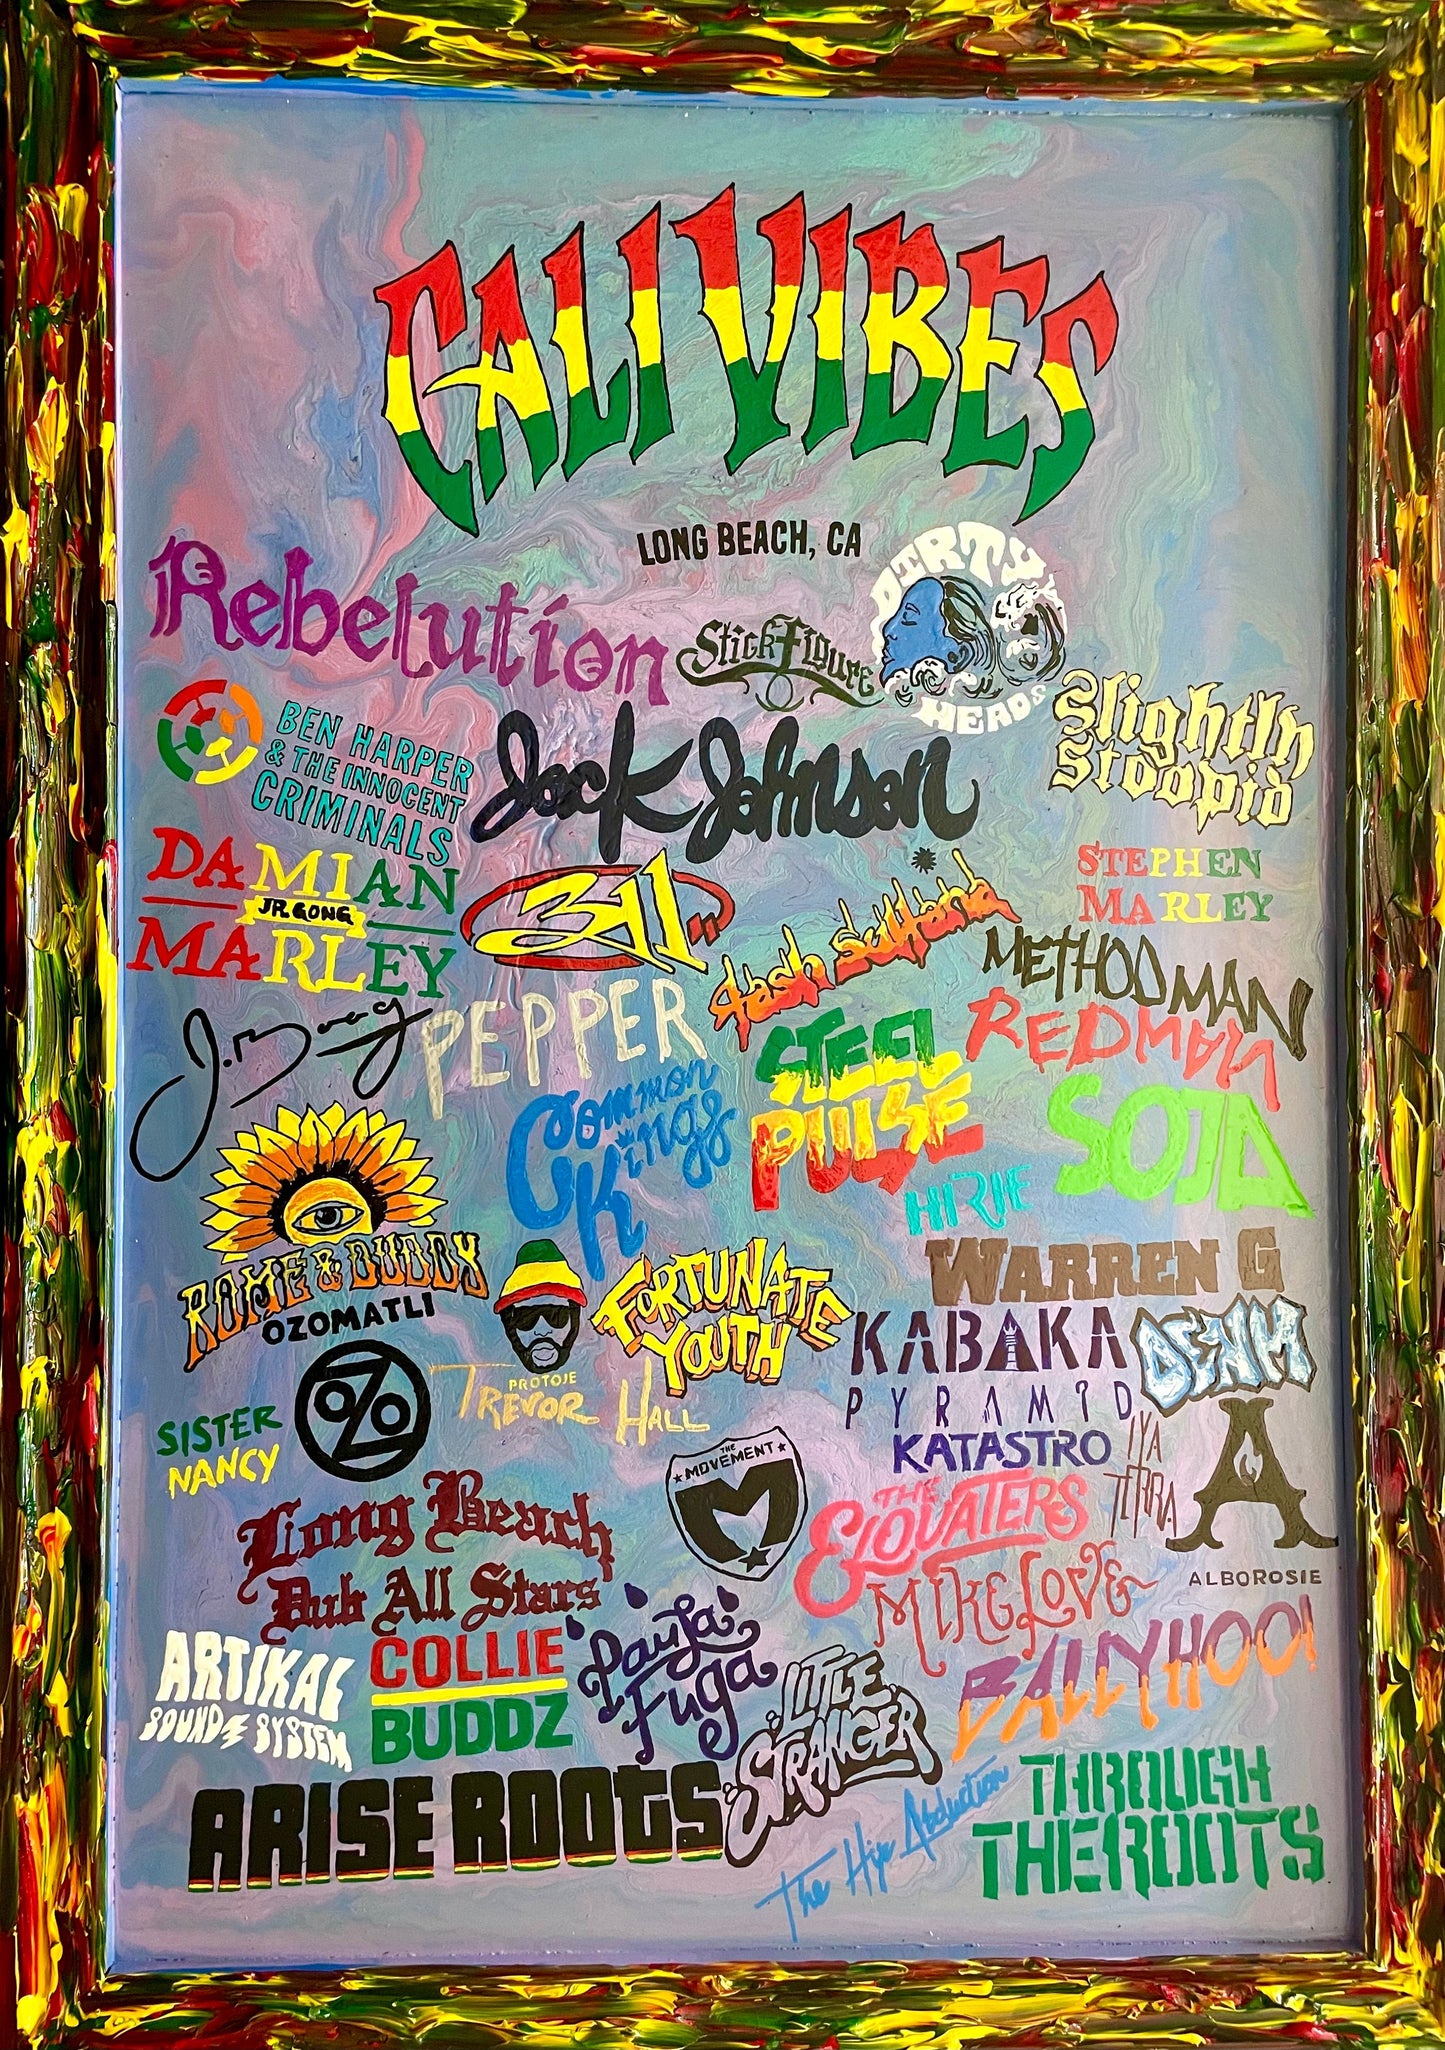 CALI VIBES
LONG BEACH, CA
Rebelution
Stick Figure
DIRTY
HEADS
Slightly
Stoopid
BEN HARPER
& THE INNOCENT
CRIMINALS
Jack Johnson
DAMIAN
JR. GONG
MARLEY
311
tash sultana
STEPHEN
MARLEY
METHODMAN
REDMAN
J. Boog
PEPPER
Common
Kings
STEEL
PULSE
HIRIE
SOJA
ROME & DUDDY
OZOMATLI
OZO
PROTOJE
FORTUNATE
YOUTH
WARREN G
KABAKA
PYRAMID
DENM
TREVOR HALL
SISTER
NANCY
KATASTRO
IYA
TERRA
A
ALBOROSIE
THE
MOVEMENT
M
THE
ELOVATERS
MIKE LOVE
Long Beach
Dub All Stars
ARTIKAL
SOUND SYSTEM
COLLIE
BUDDZ
Paula
Fuga
LITTLE
STRANGER
BALLYHOO!
ARISE ROOTS
The Hip Abduction
THROUGH
THE ROOTS